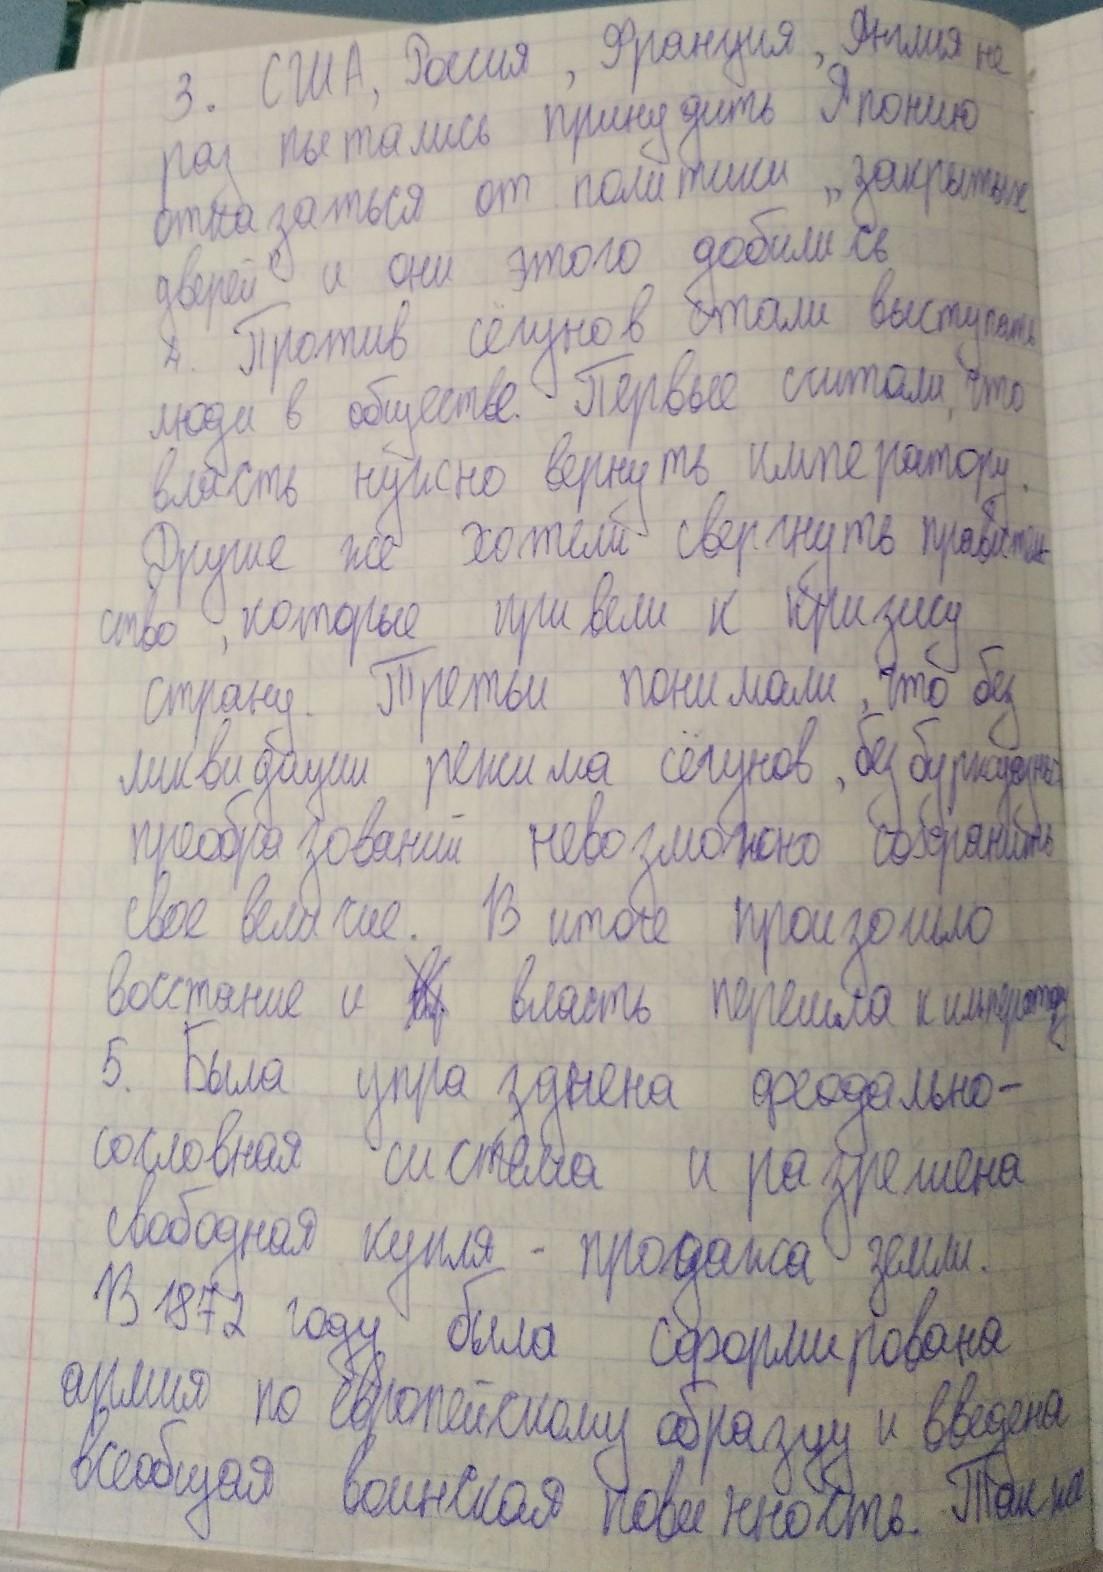 3. США, Россия, Франция, Англия не
раз пытались принудить Японию
отказаться от политики „закрытых
дверей" и они этого добились
4. Против сёгунов стали выступать
люди в обществе. Первые считали, что
власть нужно вернуть императору.
Другие же хотели свергнуть правитель-
ство, которые привели к кризису
страну. Третьи понимали, что без
ликвидации режима сёгунов, без буржуазных
преобразований невозможно сохранить
свое величие. В итоге произошло
восстание и власть перешла к императору
5. Была упразднена феодально-
сословная система и разрешена
свободная купля - продажа земли.
В 1872 году была сформирована
армия по европейскому образцу и введена
всеобщая воинская повинность. Также